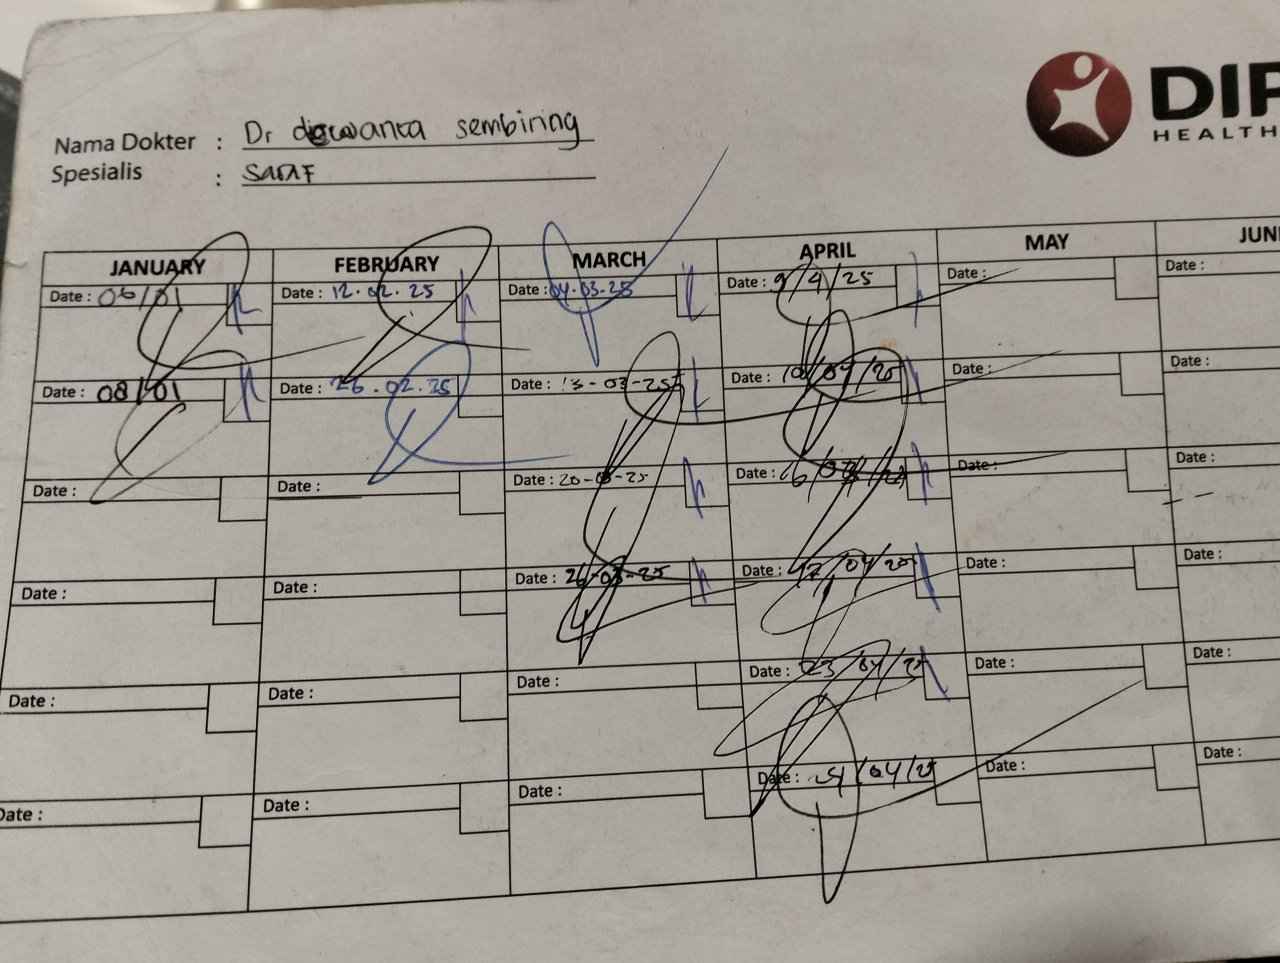 DIP
HEALTH
Nama Dokter : Dr dewanta sembiring
Spesialis : saraf
JANUARY FEBRUARY MARCH APRIL MAY JUN
Date : 06/01 Date : 12.02.25 Date : 04.03.25 Date : 9/4/25 Date : Date :
Date : 08/01 Date : 26.02.25 Date : 13-03-25 Date : 10/04/25 Date : Date :
Date : Date : Date : 20-03-25 Date : Date : Date :
Date : Date : Date : 26-03-25 Date : 17/04/25 Date : Date :
Date : Date : Date : Date : 23/04/25 Date : Date :
Date : Date : Date : Date : 24/04/25 Date : Date :